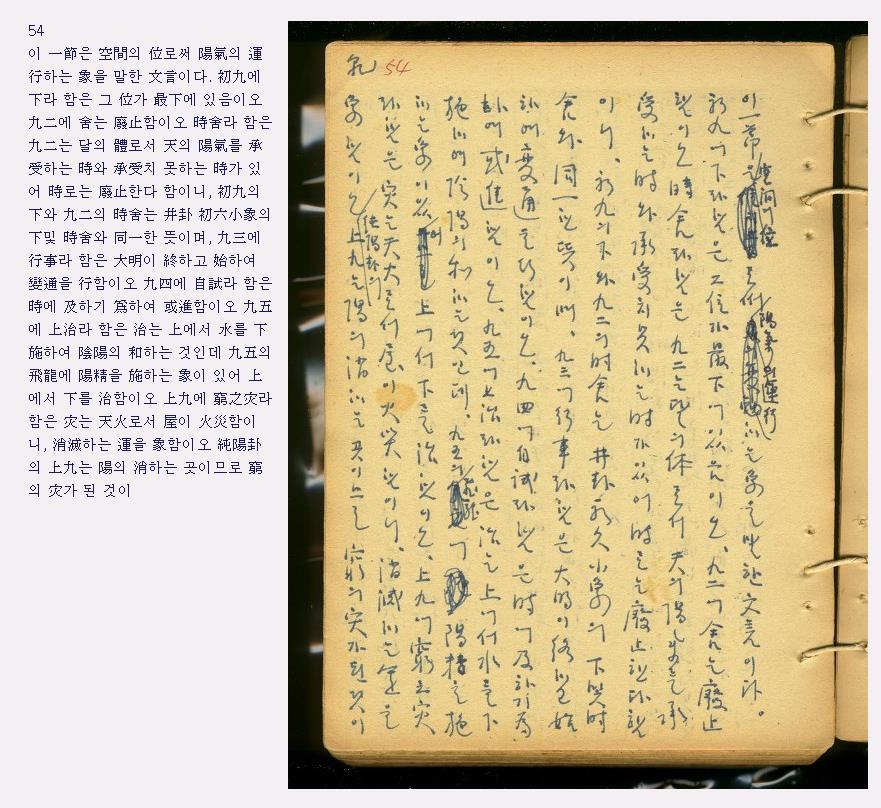 54
이 一節은 空間의 位로써 陽氣의 運
行하는 象을 말한 文言이다. 初九에
下라 함은 그 位가 最下에 있음이오
九二에 舍는 廢止함이오 時舍라 함은
九二는 달의 體로서 天의 陽氣를 承
受하는 時와 承受치 못하는 時가 있
어 時로는 廢止한다 함이니, 初九의
下와 九二의 時舍는 井卦 初六小象의
下및 時舍와 同一한 뜻이며, 九三에
行事라 함은 大明이 終하고 始하여
變通을 行함이오 九四에 自試라 함은
時에 及하기 爲하여 或進함이오 九五
에 上治라 함은 治는 上에서 水를 下
施하여 陰陽의 和하는 것인데 九五의
飛龍에 陽精을 施하는 象이 있어 上
에서 下를 治함이오 上九에 窮之灾라
함은 灾는 天火로서 屋이 火災함이
니, 消滅하는 運을 象함이오 純陽卦
의 上九는 陽의 消하는 곳이므로 窮
의 灾가 된 것이
乾 54
이 一節은 空間의 位로써 陽氣의 運行하는 象을 말한 文言이다.
初九에 下라 함은 그 位가 最下에 있음이오 九二에 舍는 廢止
함이오 時舍라 함은 九二는 달의 体로서 天의 陽氣를 承
受하는 時와 承受치 못하는 時가 있어 時로는 廢止한다 함
이니, 初九의 下와 九二의 時舍는 井卦 初六小象의 下및 時
舍와 同一한 뜻이며, 九三에 行事라 함은 大明이 終하고 始
하여 變通을 行함이오 九四에 自試라 함은 時에 及하기 爲
하여 或進함이오 九五에 上治라 함은 治는 上에서 水를 下
施하여 陰陽의 和하는 것인데, 九五의 飛龍에 陽精을 施
하는 象이 있어 上에서 下를 治함이오, 上九에 窮之灾
라 함은 灾는 天火로서 屋이 火災함이니, 消滅하는 運을
象함이오 純陽卦의 上九는 陽의 消하는 곳이므로 窮의 灾가 된 것이